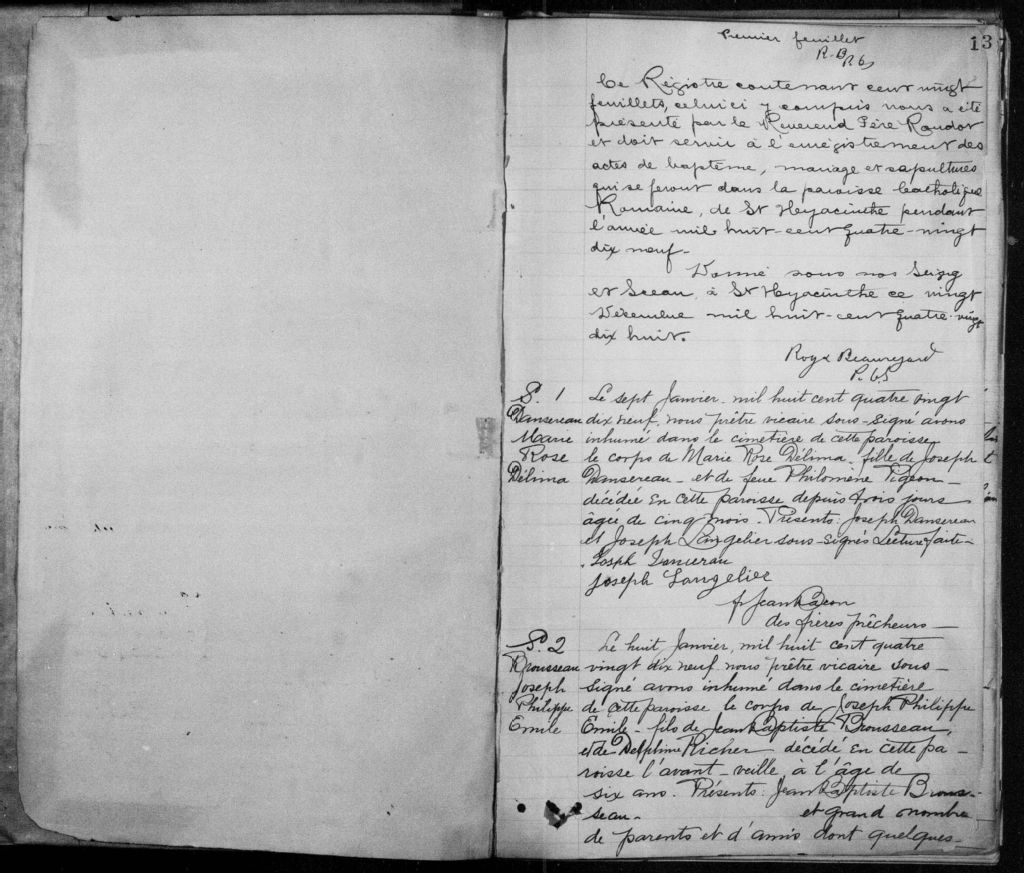 Premier feuillet
13
R-B
P.C.S
Ce Régistre contenant cent vingt
feuillets, celui ci y compris nous a été
présenté par le Révérend Père Roudot
et doit servir à l'enrégistrement des
actes de baptême, mariage et sépultures
qui se feront dans la paroisse Catholique
Romaine, de St Hyacinthe pendant
l'année mil huit-cent quatre-vingt
dix neuf.
Donné sous nos Seing
et Sceau à St Hyacinthe ce vingt
Décembre mil huit-cent quatre-vingt
dix huit.
Roy & Beauregard
P.C.S
S. 1
Dansereau
Marie
Rose
Délima
Le sept Janvier mil huit cent quatre vingt
dix neuf, nous prêtre vicaire sous-signé avons
inhumé dans le cimetière de cette paroisse
le corps de Marie Rose Délima fille de Joseph
Dansereau - et de feue Philomène Pigeon -
décédée en cette paroisse depuis trois jours
âgée de cinq mois. Présents: Joseph Dansereau
et Joseph Langelier sous-signés Lecture faite -
Joseph Langelier
des frères prêcheurs -
S. 2
Brousseau
Joseph
Philippe
Emile
Le huit Janvier, mil huit cent quatre
vingt dix neuf nous prêtre vicaire sous-
signé avons inhumé dans le cimetière
de cette paroisse le corps de Joseph Philippe
Emile - fils de Jean Baptiste Brousseau
et de Delphine Richer décédé en cette pa-
roisse l'avant-veille à l'âge de
six ans. Présents: Jean Baptiste Brous-
seau - et grand nombre
de parents et d'amis dont quelques-